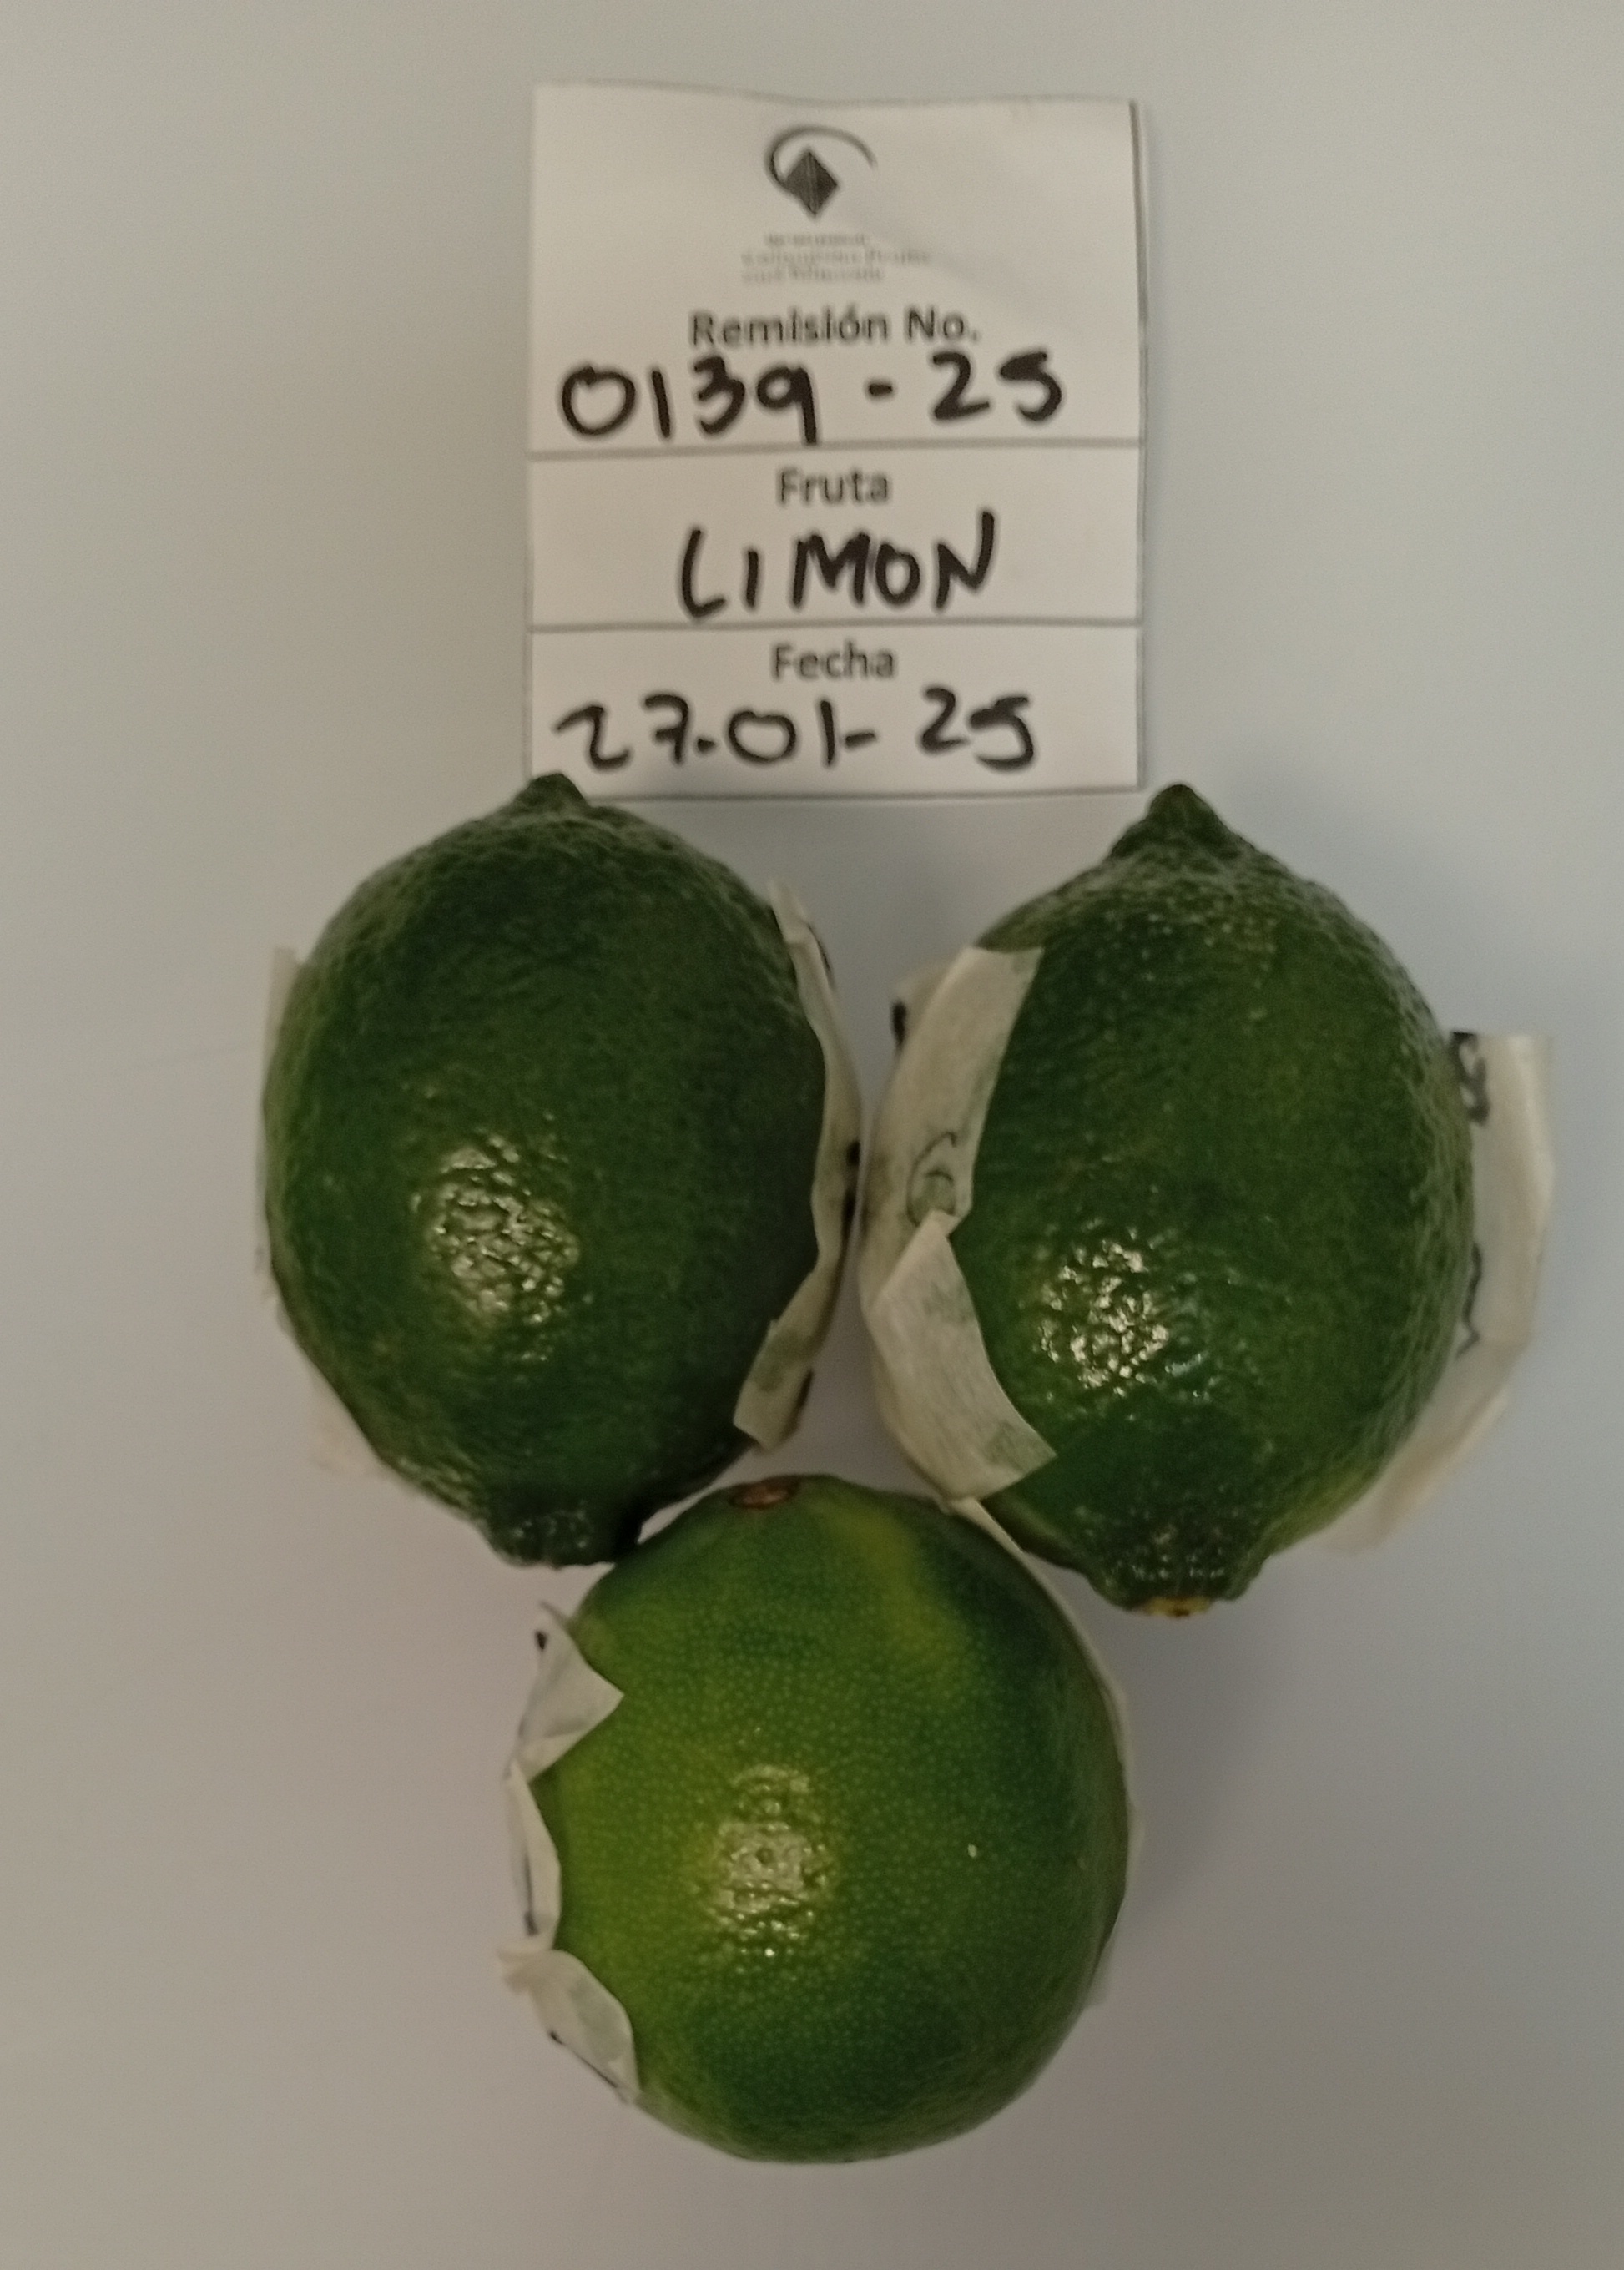 Remisión No.
0139 - 25
Fruta
LIMON
Fecha
27-01-25